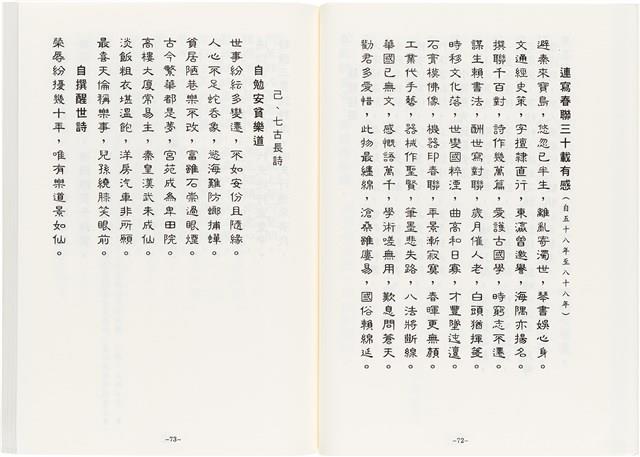 連寫春聯三十載有感(自五十八年至八十八年)
避秦來寶島,悠忽已半生,離亂寄濁世,琴書娛心身。
文通經史策,字擅隸直行,東瀛曾邀譽,海隅亦揚名。
撰聯千百對,詩作幾萬篇,愛護古國學,時窮志不遷。
謀生賴書法,酬世寫對聯,歲月催人老,白頭猶揮箋。
時移文化落,世變國粹湮,曲高和日寡,才豐墜迍邅。
石膏模佛像,機器印春聯,平景漸寂寞,春暉更無顏。
工業代手藝,器械作聖賢,筆墨悲失路,八法將斷線。
華國已無文,感慨語萬千,學術嗟無用,歎息問蒼天。
勸君多愛惜,此物最纏綿,滄桑雖屢易,國俗賴綿延。
-72-
己、七古長詩
自勉安貧樂道
世事紛紜多變遷,不如安份且隨緣。
人心不足蛇吞象,慾海難防螂捕蟬。
貧居陋巷樂不改,富雖石崇過眼煙。
古今繁華都是夢,宮苑成為卑田院。
高樓大廈常易主,秦皇漢武未成仙。
淡飯粗衣堪溫飽,洋房汽車非所願。
最喜天倫稱樂事,兒孫繞膝笑眼前。
自撰醒世詩
榮辱紛擾幾十年,唯有樂道景如仙。
-73-